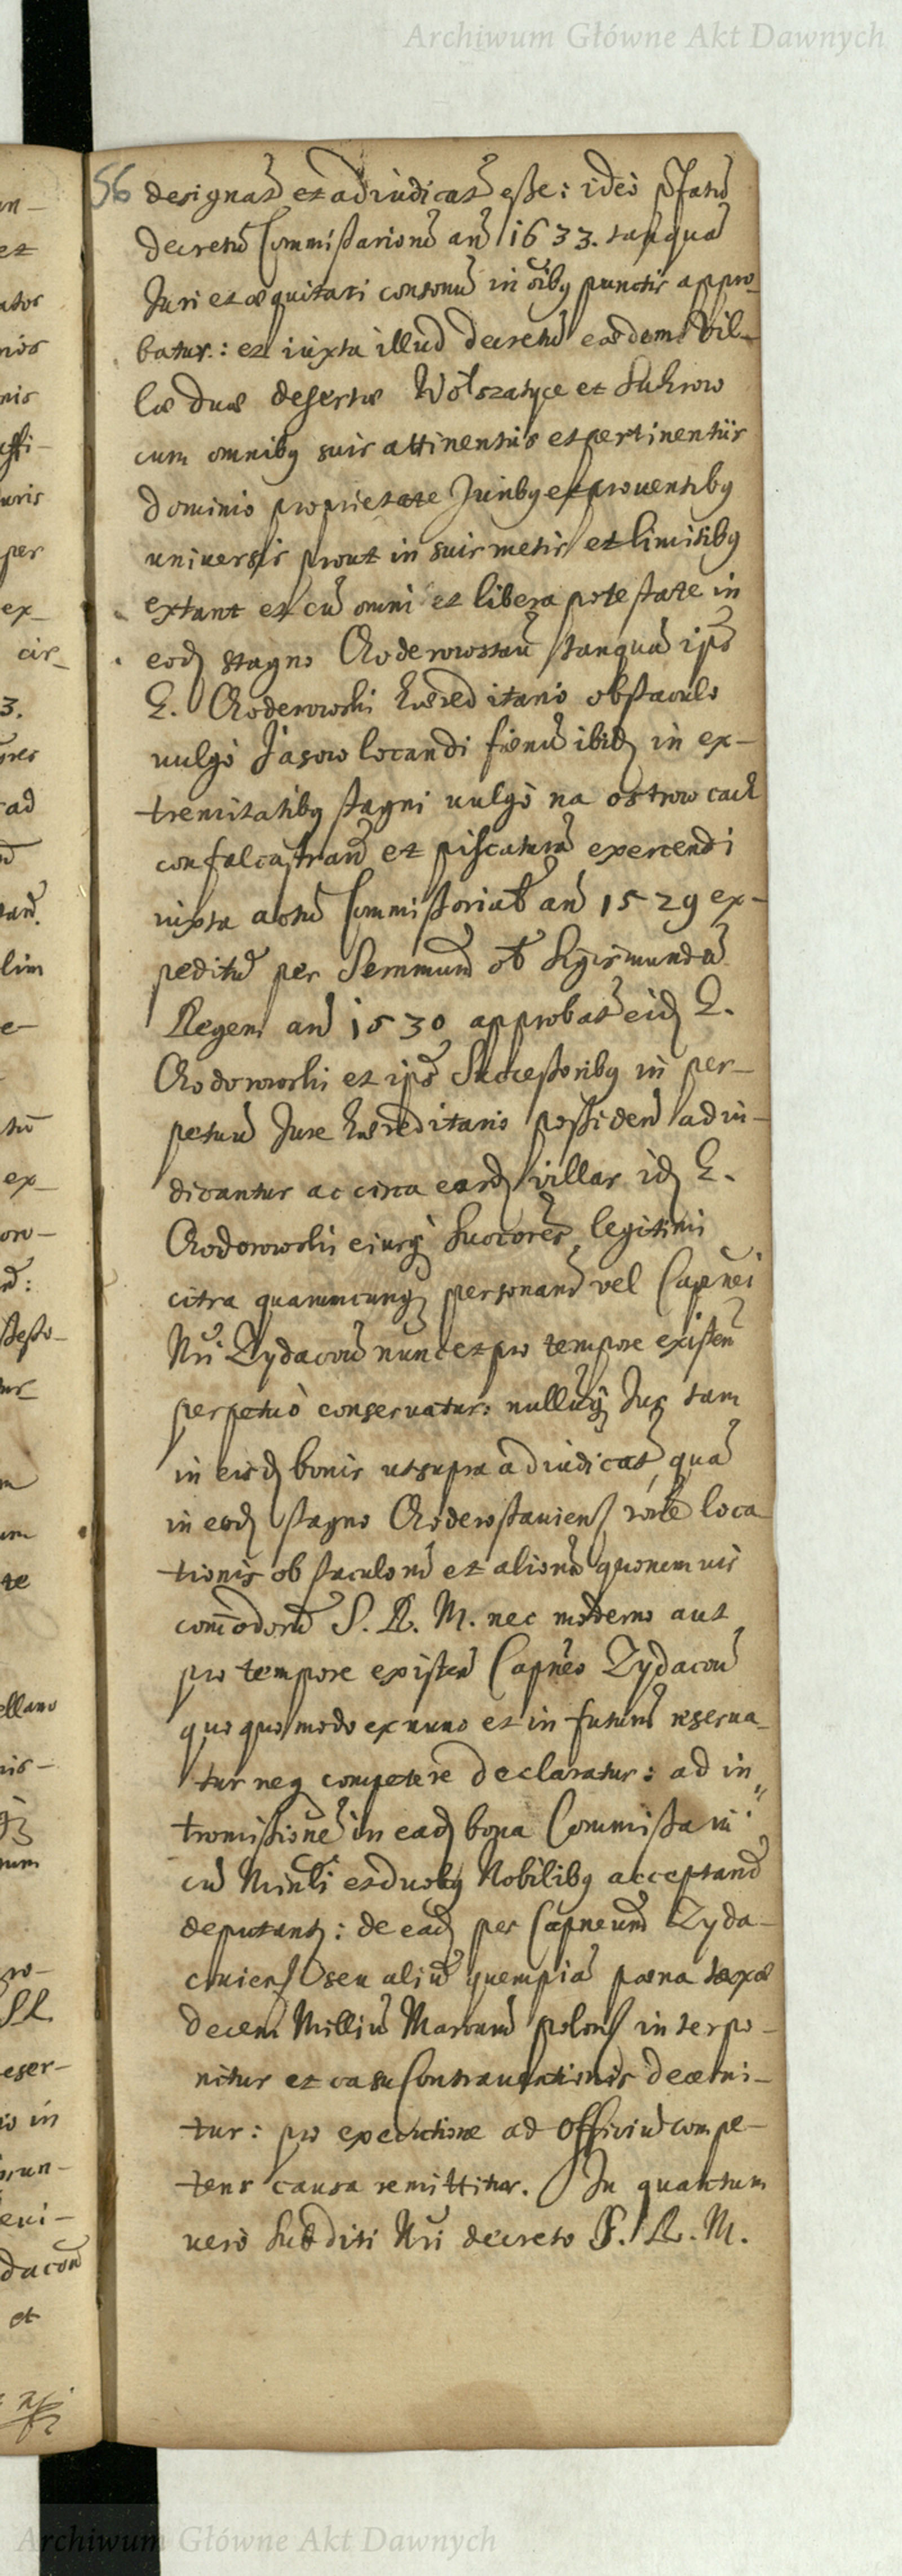 Archiwum Główne Akt Dawnych
56 designat et adiudicat esse: ideo pfatu
decretu Commissarioru an 1633. tanqua
Juri et æquitati consonu in oibq punctis appro-
batur: et iuxta illud decretu eædem Vil-
læ duæ desertæ Wolszatyce et Suhrow
cum omnibq suis attinentiis et pertinentiis
dominio proprietate Juribq et prouentibq
universis prout in suis metis et limitibq
extant et cu omni et libera potestate in
eod stagno Chodorowstau tanqua ips
G. Chodorowski hæreditario obstaculo
vulgo Jasow locandi fænu ibid in ex-
tremitatibq stagni vulgo na ostrowcach
confalcastran et piscatura exercendi
iuxta actu Commissoriat an 1529 ex-
peditu per Sermmum ol Sigismunda
Regem an 1530 approbat eid G.
Chodorowski et ips Successoribq in per-
petuu Jure hæreditario possiden adiu-
dicantur ac circa easd villas id G.
Chodorowski eiusq Succores legitimi
citra quamcunq personaru vel Capnei
Nri Zydacoui nunc et pro tempore existen
perpetuo conseruatur: nulluq Jus tam
in eisd bonis ut supra adiudicat, qua
in eod stagno Chodorostauiens rone loca
tionis obstaculoru et alioru quorumuis
commodoru S. R. M. nec moderno aut
pro tempore existen Capneo Zydacou
quoquo modo ex nunc et in futuru reserua-
tur neq competere declaratur: ad in
tromissione in ead bona Commissarii
cu Minli et duobq Nobilibq acceptand
deputant: de ead per Capneum Zyda-
couiens seu aliu quempia pæna taxæ
decem Milliu Marcaru polon interpo-
nitur et casu Contrauentionis decerni-
tur: pro executione ad officiu compe-
tens causa remittitur. In quantum
vero Subditi Nri decreto S. R. M.
Archiwum Główne Akt Dawnych